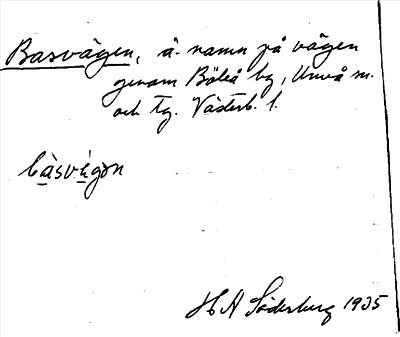 Basvägen, ä. namn på vägen
genom Böleå by, Umeå sn.
och tg. Västerb. l.
bàsvä̀gɘn
H A Söderberg 1935